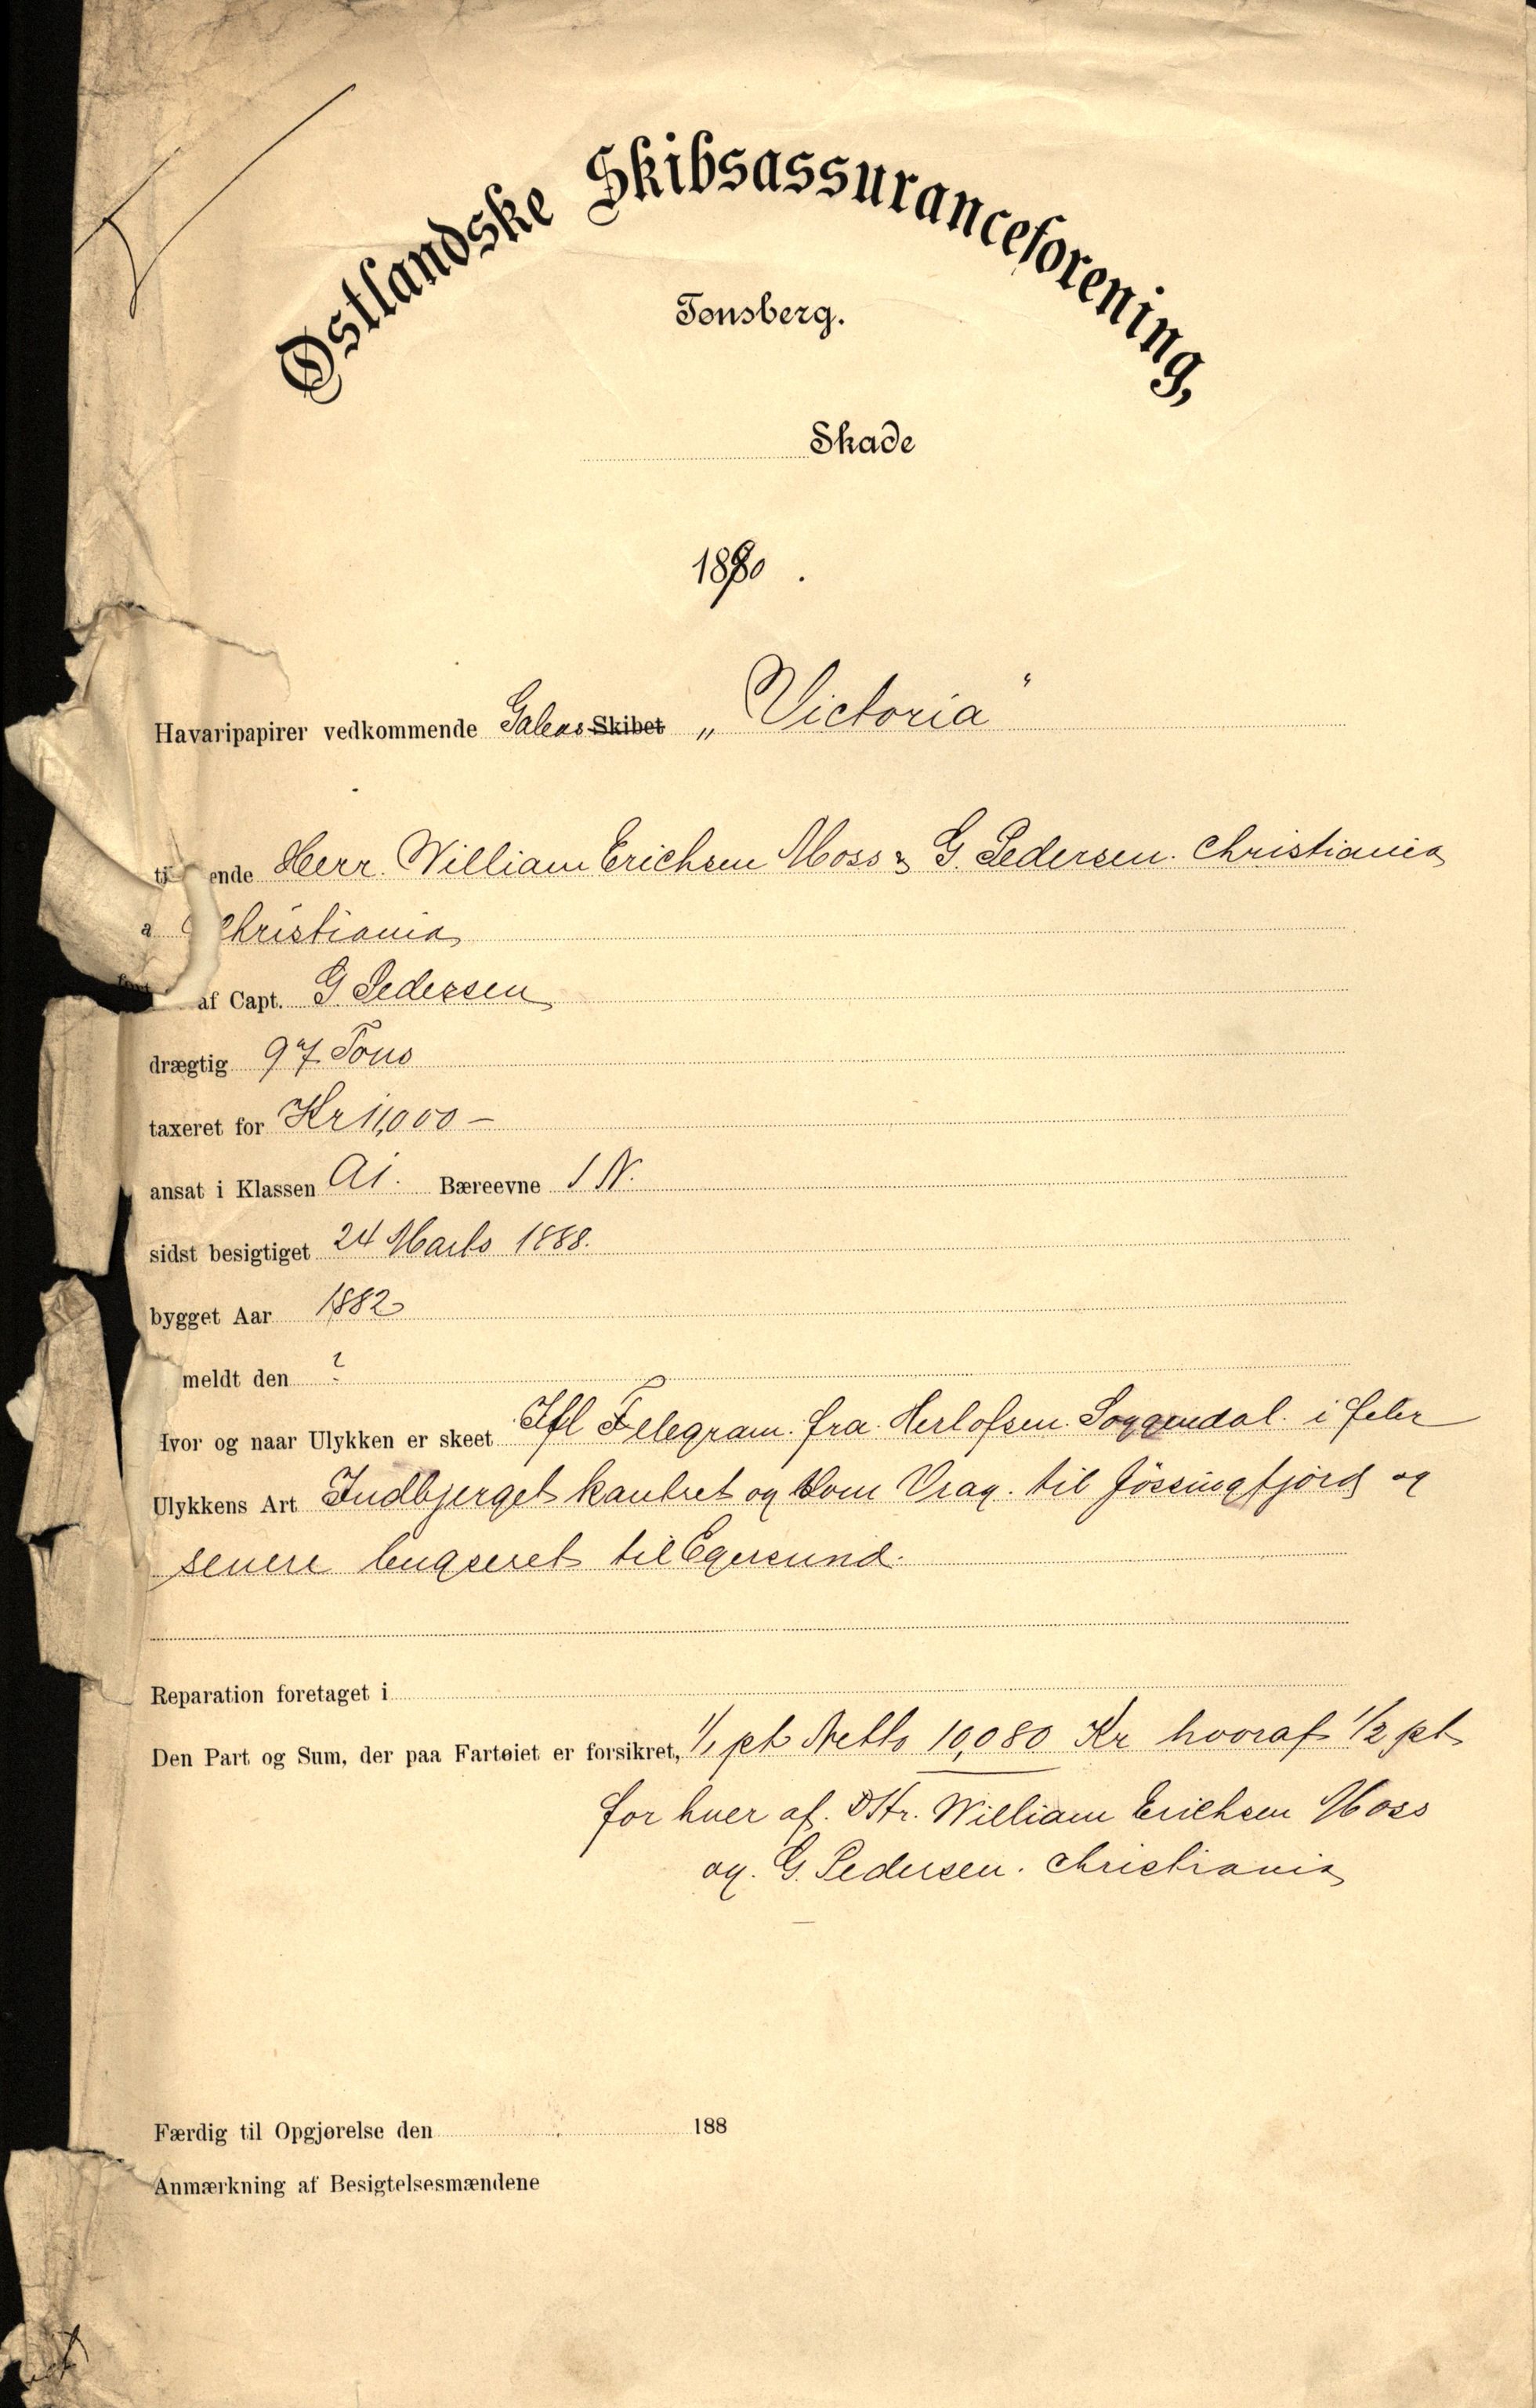 Østlandske Skibsassuranceforening,
Tønsberg.
Skade
1890.
Havaripapirer vedkommende Galeas Skibet „Victoria"
ti ende Herr. William Erichsen Moss & G. Pedersen. Christiania
a Christiania
af Capt. G Pedersen
drægtig 97 Tons
taxeret for Kr 11,000 –
ansat i Klassen A1. Bæreevne 1 N.
sidst besigtiget 24 Marts 1888.
bygget Aar 1882
meldt den ?
Hvor og naar Ulykken er skeet Ifl Telegram. fra. Herlofsen. Soggendal. i
Ulykkens Art Indbjerget kantret og som Vrag. til Jössingfjord og
senere bugseret til Egersund.
Reparation foretaget i
Den Part og Sum, der paa Fartøiet er forsikret, 1/1 pt Netto 10,080 Kr hvoraf 1/2 pt
for hver af. DHr. William Erichsen Moss
og. G. Pedersen. Christiania
Færdig til Opgjørelse den 188
Anmærkning af Besigtelsesmændene